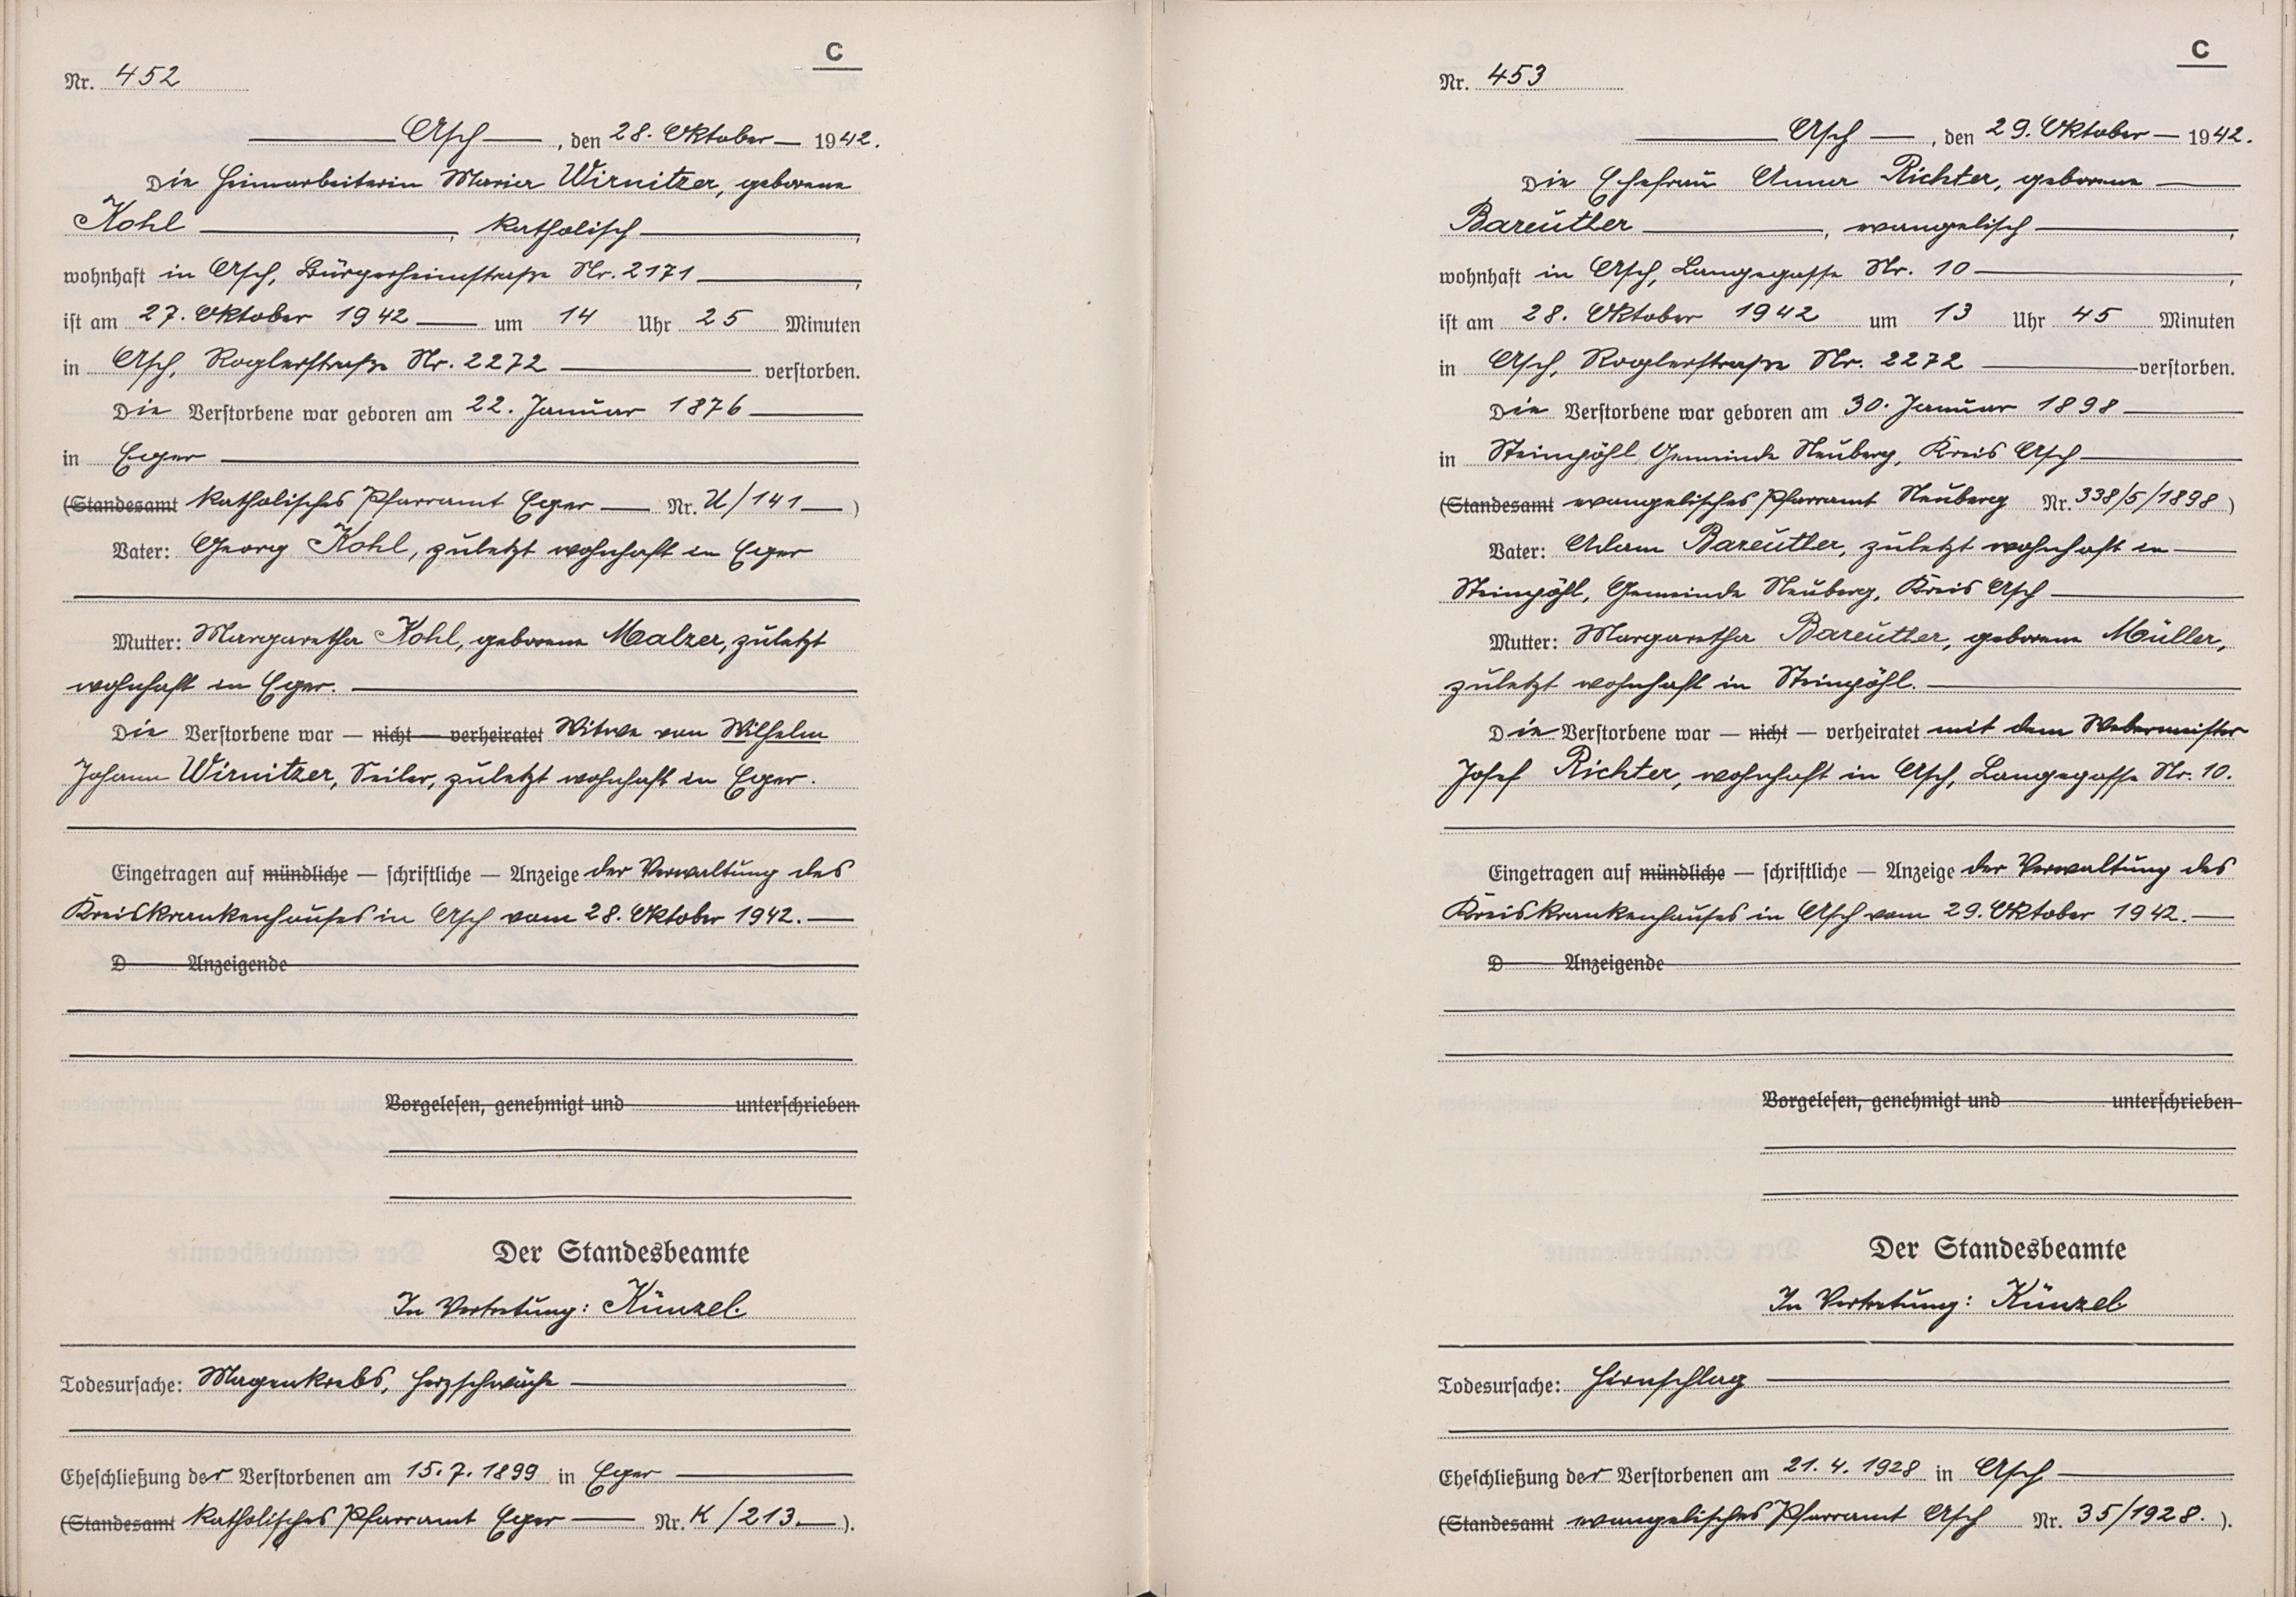 C
Nr. 452
Asch, den 28. Oktober 1942.
Die Heimarbeiterin Maria Wirnitzer, geborene
Kohl, katholisch,
wohnhaft in Asch, Bürgerheimstraße Nr. 2171,
ist am 27. Oktober 1942 um 14 Uhr 25 Minuten
in Asch, Roglerstraße Nr. 2272 verstorben.
Die Verstorbene war geboren am 22. Januar 1876
in Eger
(Standesamt katholisches Pfarramt Eger Nr. U/141)
Vater: Georg Kohl, zuletzt wohnhaft in Eger
Mutter: Margaretha Kohl, geborene Malzer, zuletzt
wohnhaft in Eger.
Die Verstorbene war — nicht — verheiratet Witwe von Wilhelm
Johann Wirnitzer, Seiler, zuletzt wohnhaft in Eger.
Eingetragen auf mündliche — schriftliche — Anzeige der Verwaltung des
Kreiskrankenhauses in Asch vom 28. Oktober 1942.
D Anzeigende
Vorgelesen, genehmigt und unterschrieben
Der Standesbeamte
In Vertretung: Künzel.
Todesursache: Magenkrebs, Herzschwäche
Eheschließung der Verstorbenen am 15.7.1899 in Eger
(Standesamt katholisches Pfarramt Eger Nr. K/213.).
C
Nr. 453
Asch, den 29. Oktober 1942.
Die Ehefrau Anna Richter, geborene
Bareuther, evangelisch,
wohnhaft in Asch, Langegasse Nr. 10,
ist am 28. Oktober 1942 um 13 Uhr 45 Minuten
in Asch, Roglerstraße Nr. 2272 verstorben.
Die Verstorbene war geboren am 30. Januar 1898
in Steinpöhl, Gemeinde Neuberg, Kreis Asch
(Standesamt evangelisches Pfarramt Neuberg Nr. 338/5/1898)
Vater: Adam Bareuther, zuletzt wohnhaft in
Steinpöhl, Gemeinde Neuberg, Kreis Asch
Mutter: Margaretha Bareuther, geborene Müller,
zuletzt wohnhaft in Steinpöhl.
Die Verstorbene war — nicht — verheiratet mit dem Webermeister
Josef Richter, wohnhaft in Asch, Langegasse Nr. 10.
Eingetragen auf mündliche — schriftliche — Anzeige der Verwaltung des
Kreiskrankenhauses in Asch vom 29. Oktober 1942.
D Anzeigende
Vorgelesen, genehmigt und unterschrieben
Der Standesbeamte
In Vertretung: Künzel.
Todesursache: Hirnschlag
Eheschließung der Verstorbenen am 21.4.1928 in Asch
(Standesamt evangelisches Pfarramt Asch Nr. 35/1928.).